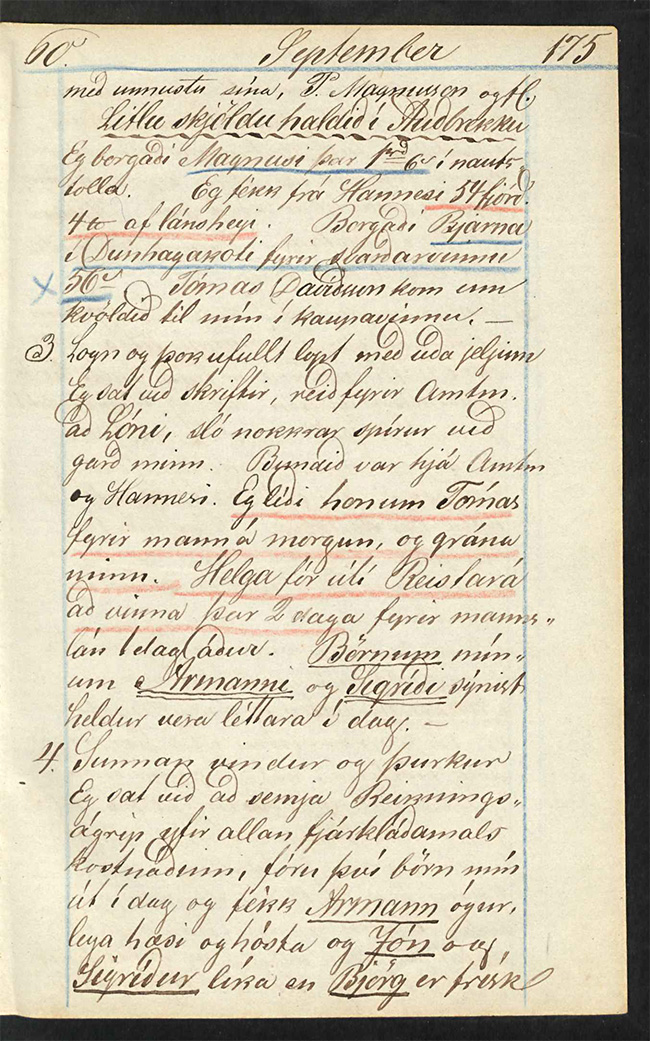 60. September 175
með unnustu sína, P. Magnusson og fl.
Litlu skjöldu haldið í Auðbrekku
Eg borgaði Magnusi þar 1 rd 6 s í nauts
tolla. Eg fékk frá Hannesi 54 fjórð.
4 af lánsheyi. Borgaði Bjarna
í Dunhagakoti fyrir
x 56 s Tómas Davíðsson kom um
kvöldið til mín í kaupavinnu. —
3. Logn og þokufullt lopt með úða jeljum
Eg sat við skriftir, reið fyrir Amtm.
að Lóni, sló nokkrar spírur við
garð minn. Bundið var hjá Amtm
og Hannesi. Eg léði honum Tómas
fyrir mann á morgun, og grána
minn. Helga fór útí Reistará
að vinna þar 2 daga fyrir manns„
lán 1 dag áður. Börnum mín„
um Ármanni og Sigríði sýnist
heldur vera léttara í dag. —
4. Sunnan vindur og þurkur
Eg sat við að semja Reiknings„
ágrip yfir allan fjárkláðamals
kostnaðinn, fóru því börn mín
út í dag og fékk Ármann ógur„
lega hæsi og hósta og Jón og
Sigríður líka en Björg er frísk